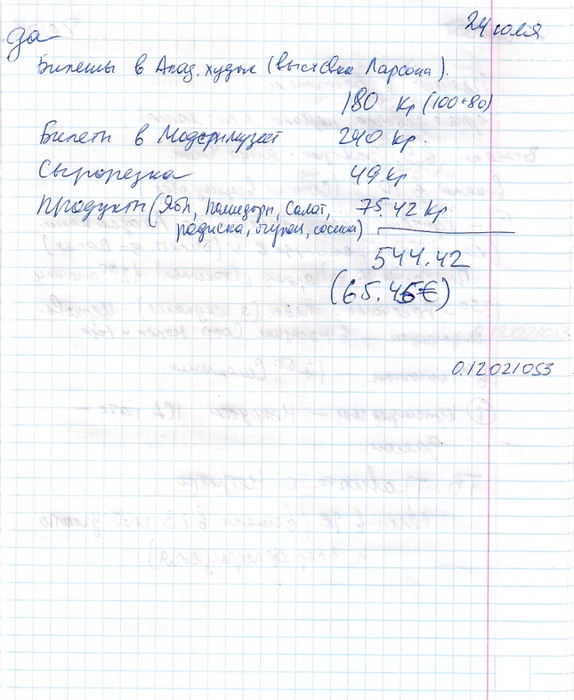 24 июля
да
Билеты в Акад. худож (выставка Ларсона).
180 кр (100+80)
Билеты в Модермузеет 240 кр.
Сырорезка 49 кр
Продукты (Ябл, помидоры, Салат, 75.42 кр
редиска, огурец, сосиски)
544.42
(65.45€)
0.12021053